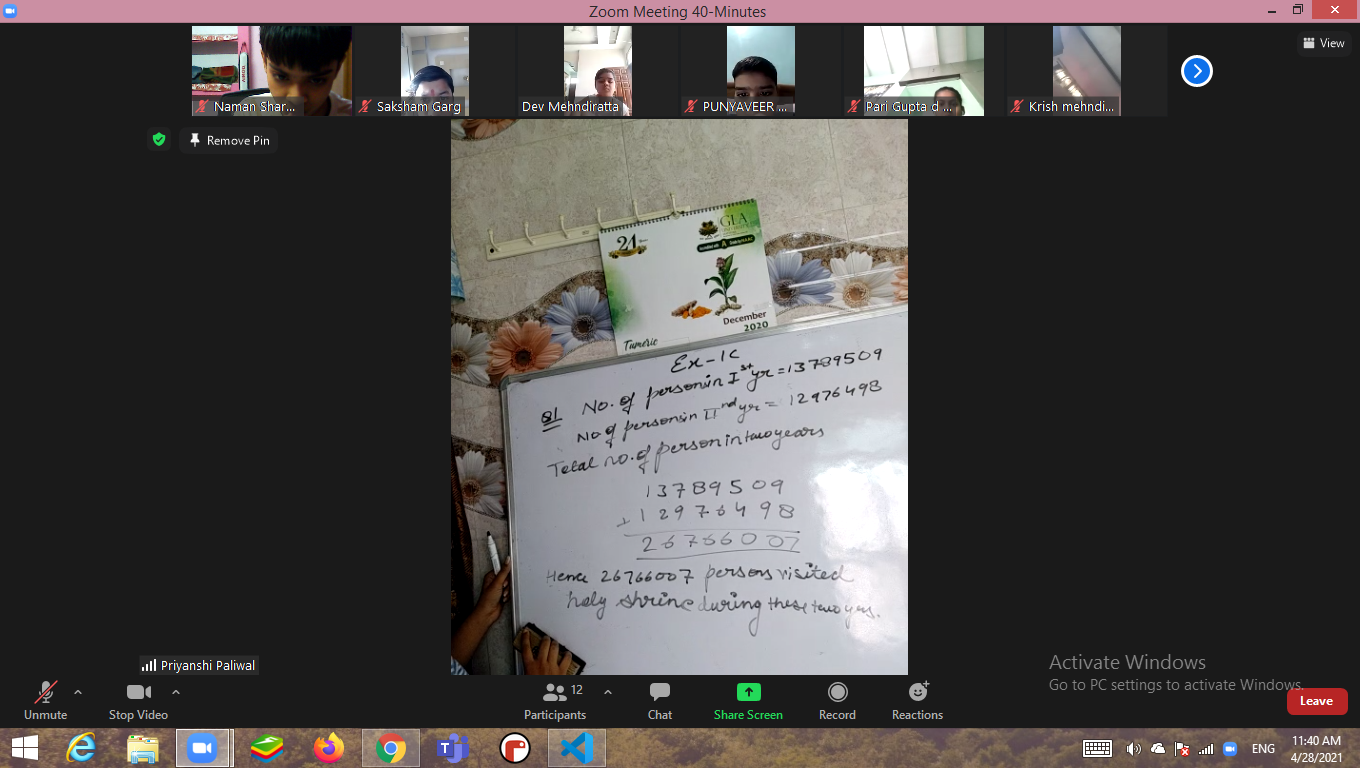 Zoom Meeting 40-Minutes
View
Naman Shar...
Saksham Garg
Dev Mehndiratta
PUNYAVEER ...
Pari Gupta d ...
Krish mehndi...
Remove Pin
21
GLA
December
2020
Tumeric
Ex-1c
Q1 No. of person in Ist yr = 13789509
No of persons in IInd yr = 12976498
Total no. of person in two years
13789509
+12976498
26766007
Hence 26766007 persons visited
holy shrine during these two yrs.
Priyanshi Paliwal
Activate Windows
Go to PC settings to activate Windows.
Unmute
Stop Video
Participants
12
Chat
Share Screen
Record
Reactions
Leave
ENG
11:40 AM
4/28/2021